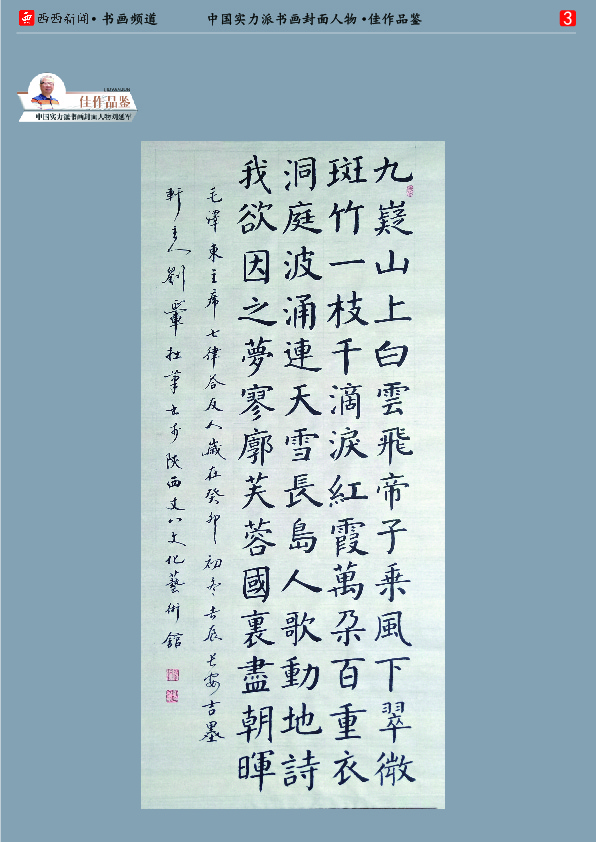 西西新闻·书画频道
中国实力派书画封面人物·佳作品鉴
3
佳作品鉴
中国实力派书画封面人物
九嶷山上白雲飛帝子乘風下翠微
斑竹一枝千滴淚紅霞萬朵百重衣
洞庭波涌連天雪長島人歌動地詩
我欲因之夢寥廓芙蓉國裏盡朝暉
毛澤東主席七律答友人歲在癸卯初冬吉辰長安吉墨
軒主人劉 拙筆書於陝西文八文化藝術館